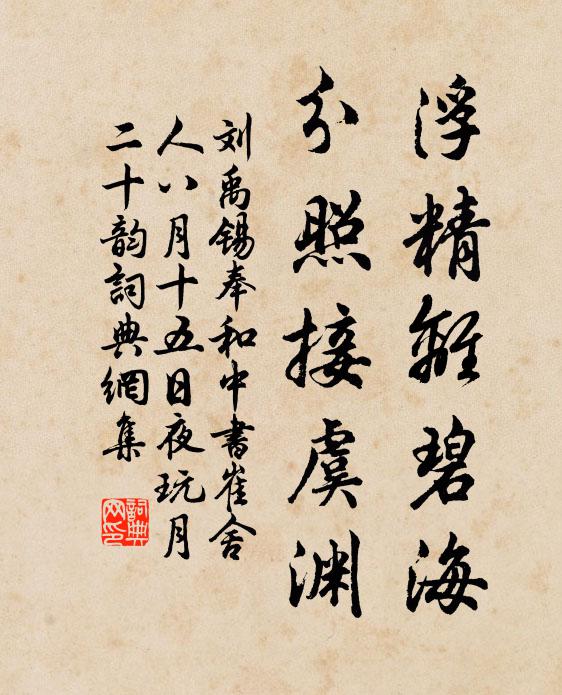 浮精離碧海
分照接虞渊
刘禹锡奉和中書崔舍
人八月十五日夜玩月
二十韵詞典網集
詞典
网印